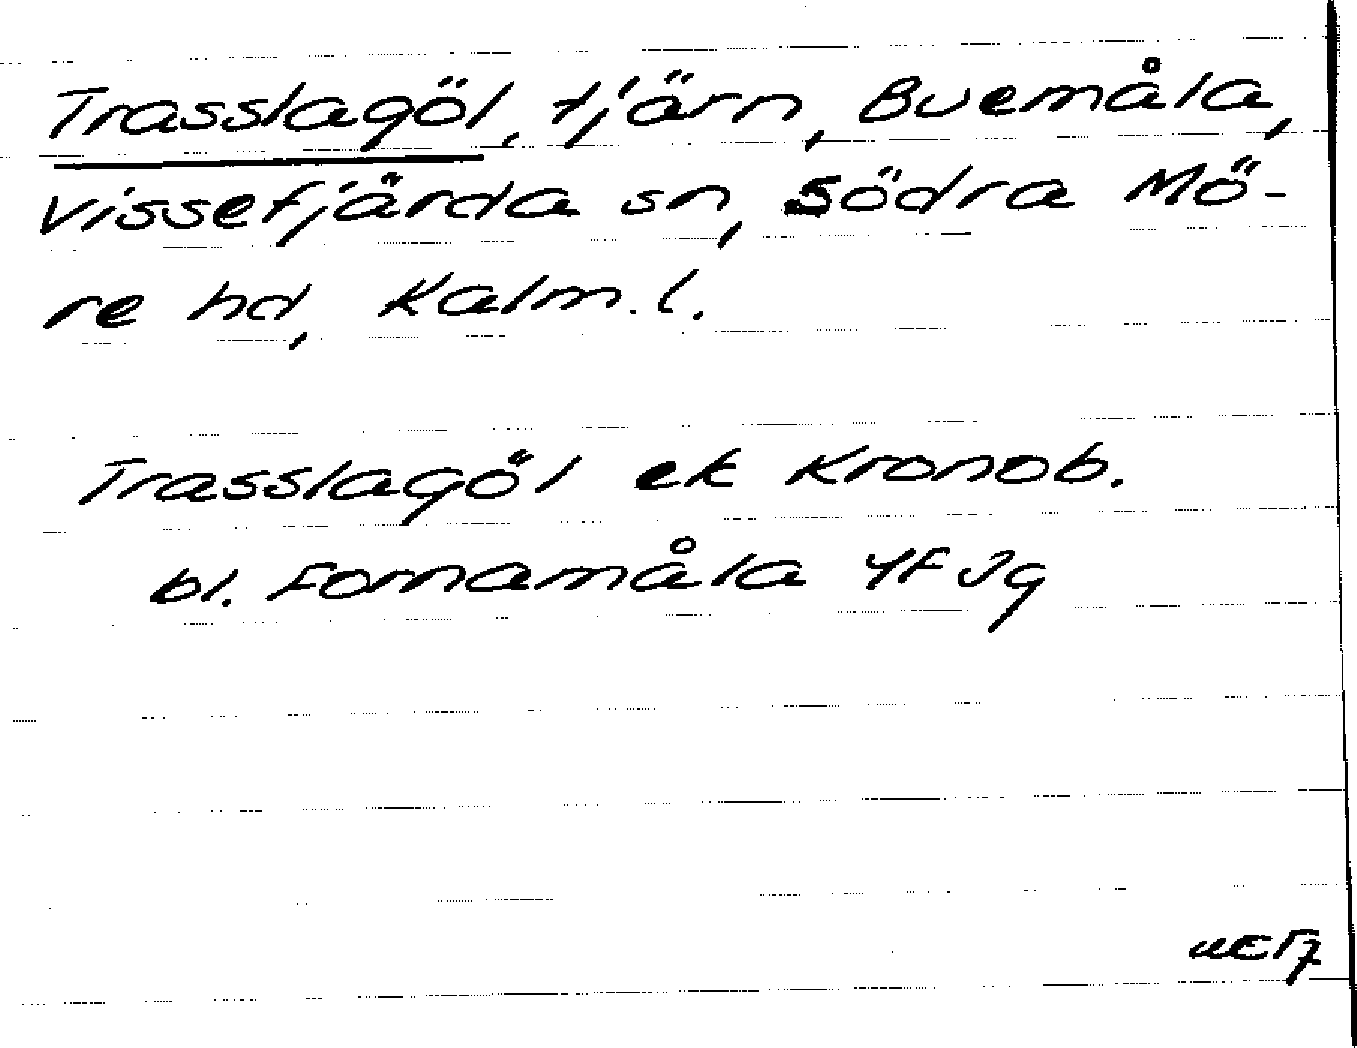 Trasslagöl, tjärn, Buemåla,
Vissefjärda sn, Södra Mö-
re hd, Kalm. l.
Trasslagöl ek Kronob.
bl. Fornamåla 4F Jg